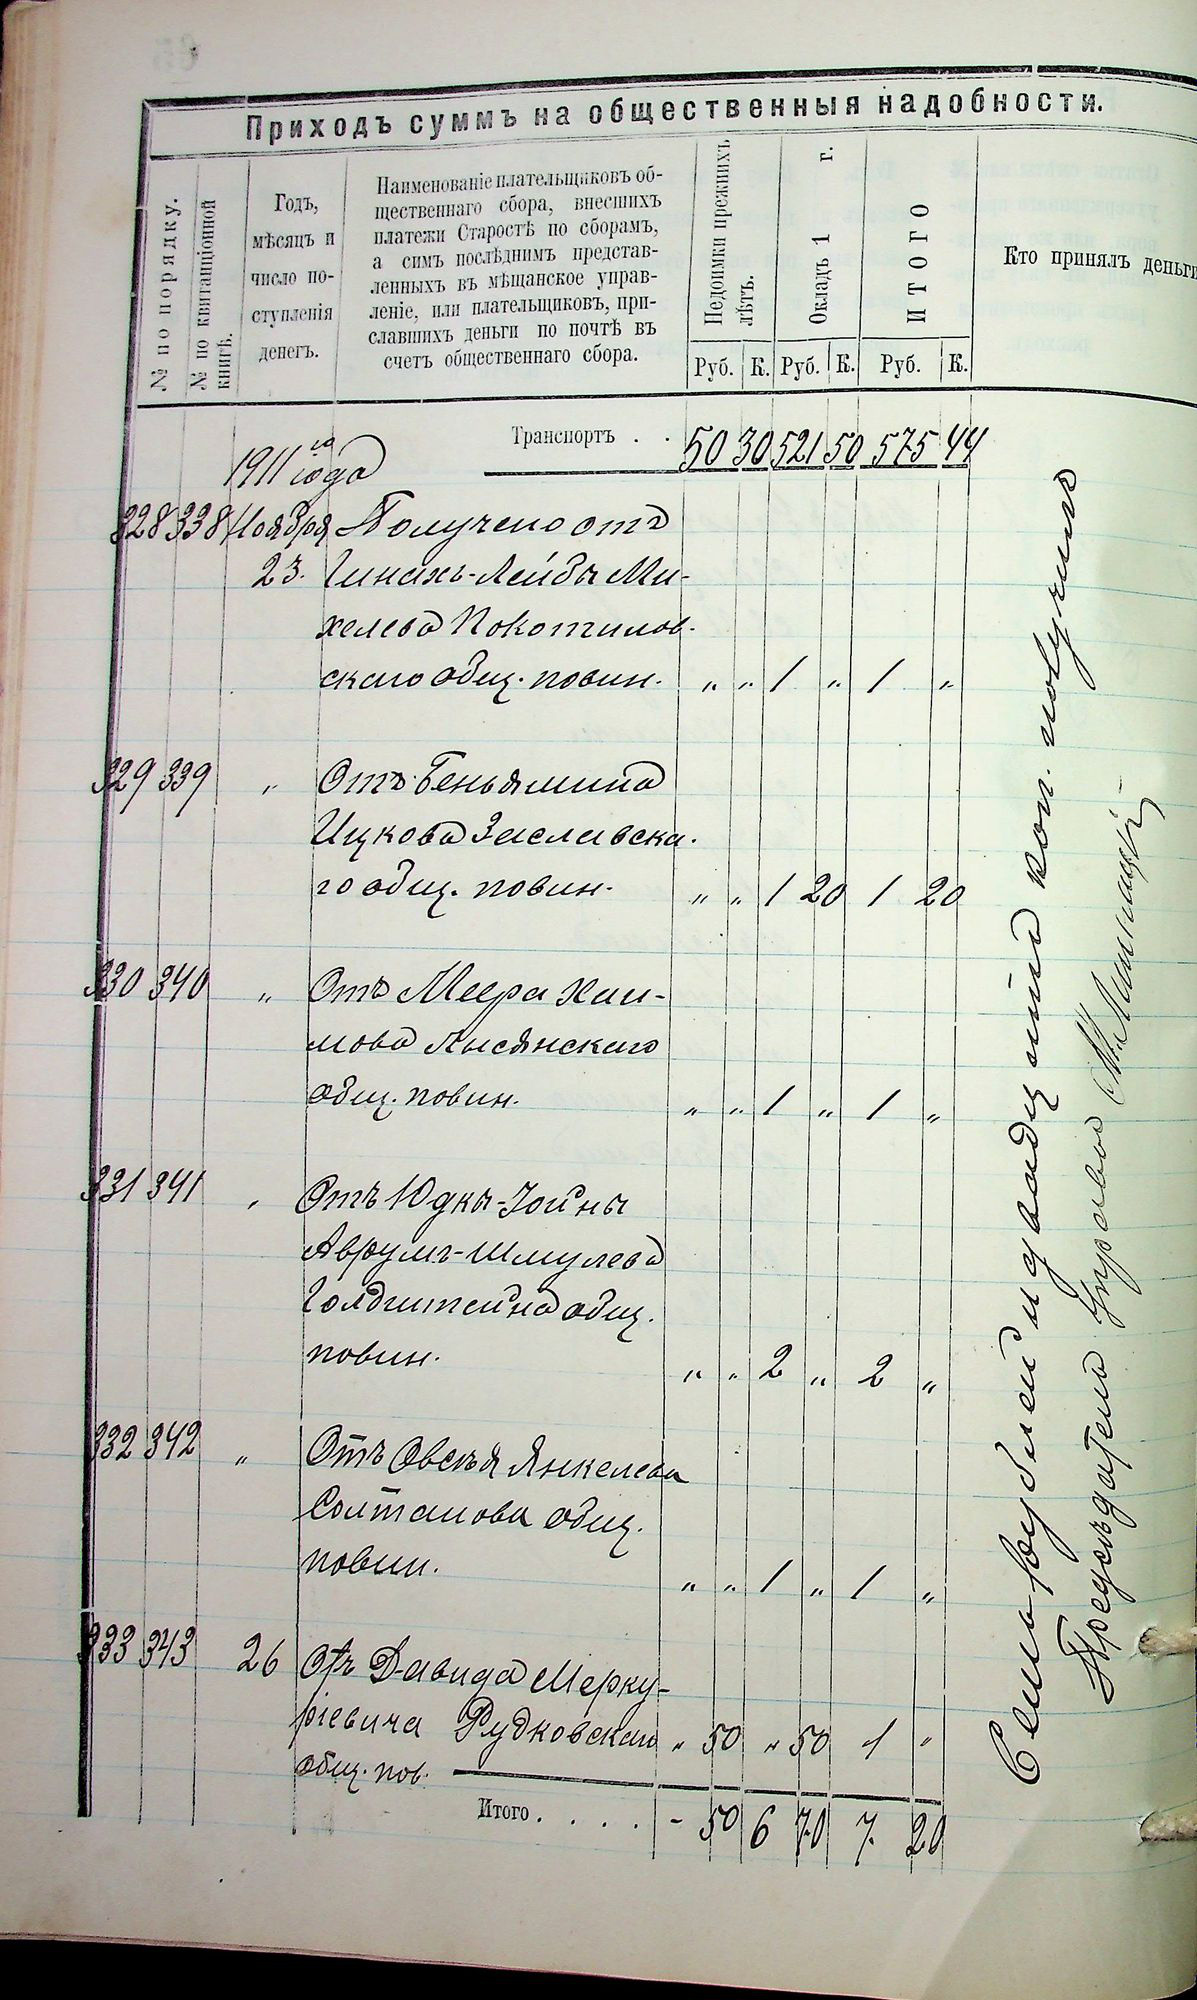 Приходъ суммъ на общественныя надобности.
№ по порядку.
№ по квитанціонной
книгѣ.
Годъ,
мѣсяцъ и
число по-
ступленія
денегъ.
Наименованіе плательщиковъ об-
щественнаго сбора, внесшихъ
платежи Старостѣ по сборамъ,
а симъ послѣднимъ представ-
ленныхъ въ мѣщанское управ-
леніе, или плательщиковъ, при-
славшихъ деньги по почтѣ въ
счетъ общественнаго сбора.
Недоимки прежнихъ
лѣтъ.
Окладъ 1 г.
ИТОГО
Кто принялъ деньги
Руб. К. Руб. К. Руб. К.
Транспортъ . . 50 30 521 50 575 44
1911 го года
328 338 Ноября Получено отъ
23. Пинахъ-Лейбы Ми-
хелева Покотилов-
скаго общ. повин. " " 1 " 1 "
329 339 " Отъ Беньямина
Ицкова Заславска-
го общ. повин. " " 1 20 1 20
330 340 " Отъ Меера Хаи-
мова Лысянскаго
общ. повин. " " 1 " 1 "
331 341 " Отъ Юдки-Іойны
Аврумъ-Шмулева
Голдштейна общ.
повин. " " 2 " 2 "
332 342 " Отъ Овсѣя Янкелева
Солтанова общ.
повин. " " 1 " 1 "
333 343 26 Отъ Давида Мерку-
ріевича Рудковскаго " 50 " 50 1 "
общ. пов.
Итого . . . . . - 50 6 70 7. 20
Семь рублей и двадцать коп. получилъ
Предсѣдатель Управы